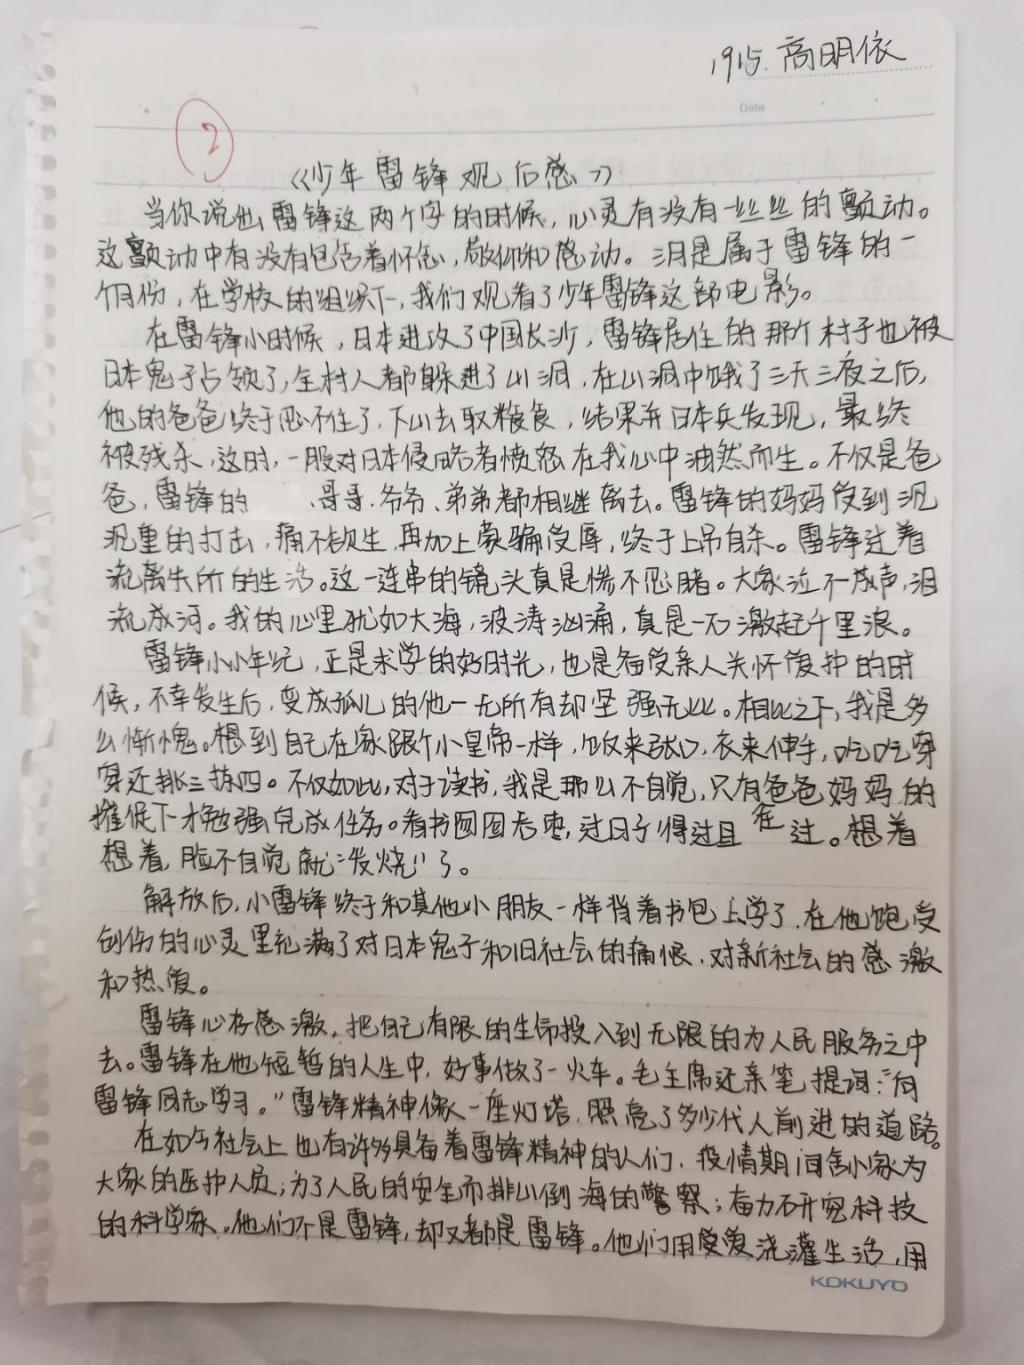 1915. 高明依
Date
2
《少年雷锋观后感》
当你说出雷锋这两个字的时候，心灵有没有一丝丝的颤动。
这颤动中有没有包含着怀念，敬仰和感动。三月是属于雷锋的一
个月份，在学校的组织下，我们观看了少年雷锋这部电影。
在雷锋小时候，日本进攻了中国长沙，雷锋居住的那个村子也被
日本鬼子占领了，全村人都躲进了山洞，在山洞中饿了三天三夜之后，
他的爸爸终于忍不住了，下山去取粮食，结果并日本兵发现，最终
被残杀，这时，一股对日本侵略者愤怒在我心中油然而生。不仅是爸
爸，雷锋的、哥哥、爷爷、弟弟都相继离去。雷锋的妈妈受到沉
沉重的打击，痛不欲生，再加上蒙骗受辱，终于上吊自杀。雷锋过着
流离失所的生活。这一连串的镜头真是惨不忍睹。大家泣不成声，泪
流成河。我的心里犹如大海，波涛汹涌，真是一石激起千里浪。
雷锋小小年纪，正是求学的好时光，也是备受亲人关怀爱护的时
候，不幸发生后，变成孤儿的他一无所有却坚强无比。相比之下，我是多
么惭愧。想到自己在家跟个小皇帝一样，饭来张口，衣来伸手，吃吃穿
穿还挑三拣四。不仅如此，对于读书，我是那么不自觉，只有爸爸妈妈的
摧促下才勉强完成任务。看书囫囵吞枣，过日子得过且在过。想着
想着，脸不自觉就“发烧”了。
解放后，小雷锋终于和其他小朋友一样背着书包上学了，在他饱受
创伤的心灵里充满了对日本鬼子和旧社会的痛恨，对新社会的感激
和热爱。
雷锋心存感激，把自己有限的生命投入到无限的为人民服务之中
去。雷锋在他短暂的人生中，好事做了一火车。毛主席还亲笔提词：“向
雷锋同志学习。”雷锋精神像一座灯塔，照亮了多少代人前进的道路。
在如今社会上也有许多具备着雷锋精神的人们，疫情期间舍小家为
大家的医护人员；为了人民的安全而排山倒海的警察；奋力研究科技
的科学家。他们不是雷锋，却又都是雷锋。他们用爱爱浇灌生活，用
KOKUYO